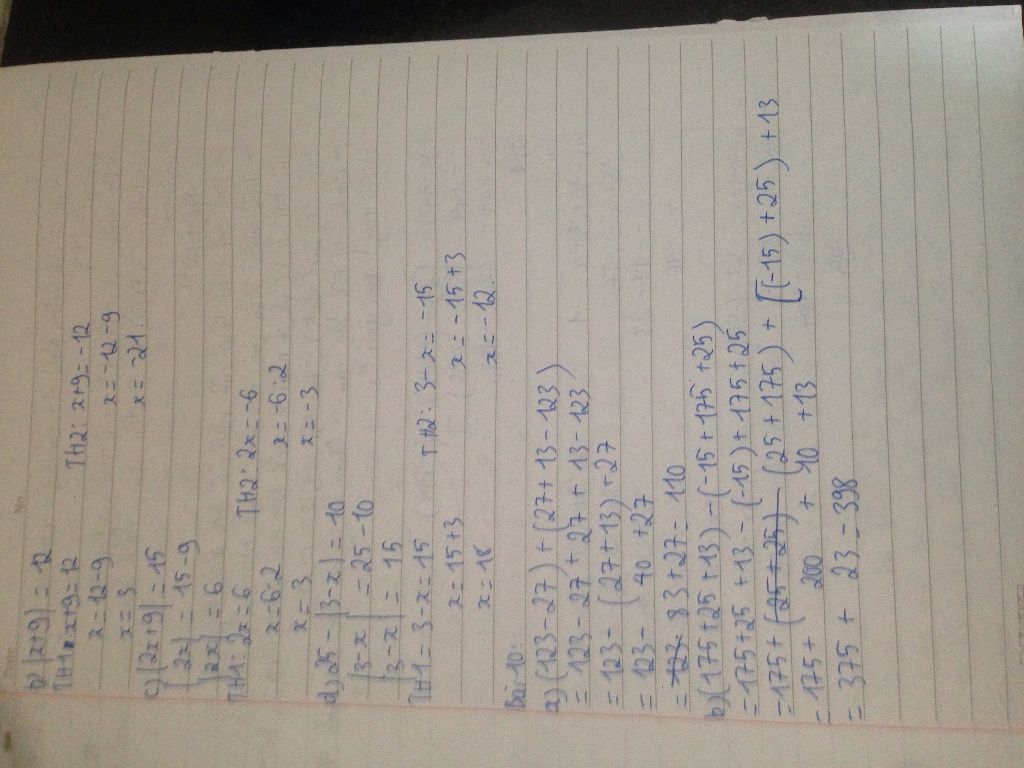 b) |x+9| = 12
TH1: x+9=12 TH2: x+9=-12
x=12-9 x=-12-9
x= 3 x= -21.
c) |2x+9| = 15
|2x| = 15-9
|2x| = 6
TH1: 2x=6 TH2: 2x=-6
x=6:2 x=-6:2
x=3 x=-3
d) 25 - |3-x| = 10
|3-x| = 25-10
|3-x| = 15
TH1= 3-x=15 TH2: 3-x= -15
x=15+3 x= -15+3
x=18 x=-12.
Bài 10:
a) (123-27) + (27+13-123)
= 123-27 + 27 + 13 - 123)
= 123- (27+13)+27
= 123- 40 +27
= 83+27= 110
b) (175+25+13) - (-15+175+25)
= 175+25 +13 - (-15) + 175+25
= 175+ (25+175) + [(-15)+25) +13
= 175+ 200 + 10 +13
= 375 + 23 = 398